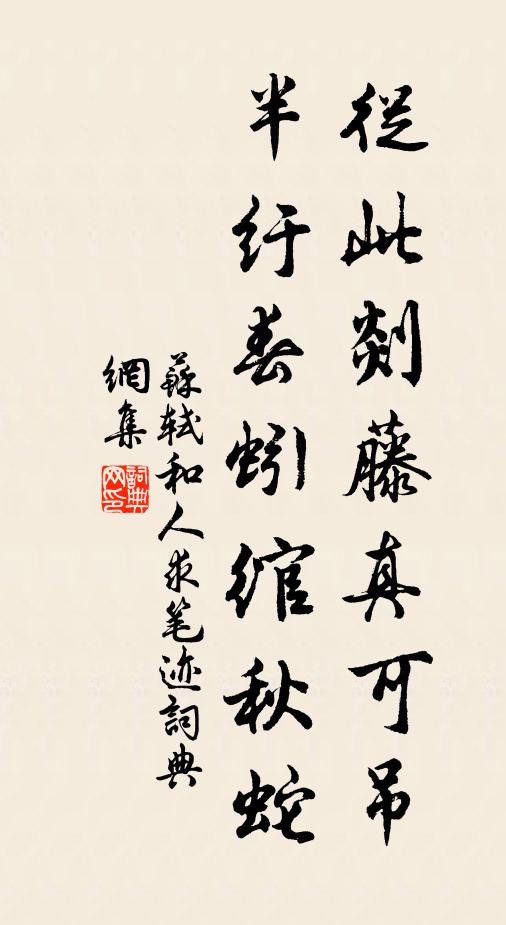 從此剡藤真可吊
半纡春蚓綰秋蛇
蘇軾和人求笔迹詞典
網集
詞典网印